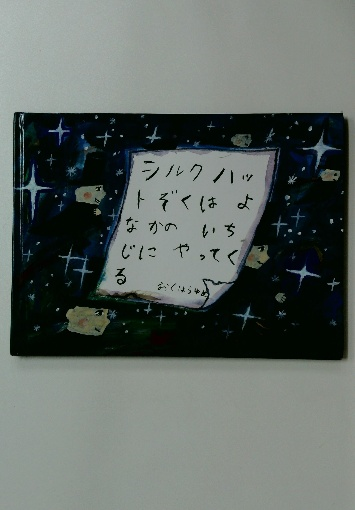 シルクハッ
トぞくはよ
なかの いち
じに やってく
る
おくはらゆめ